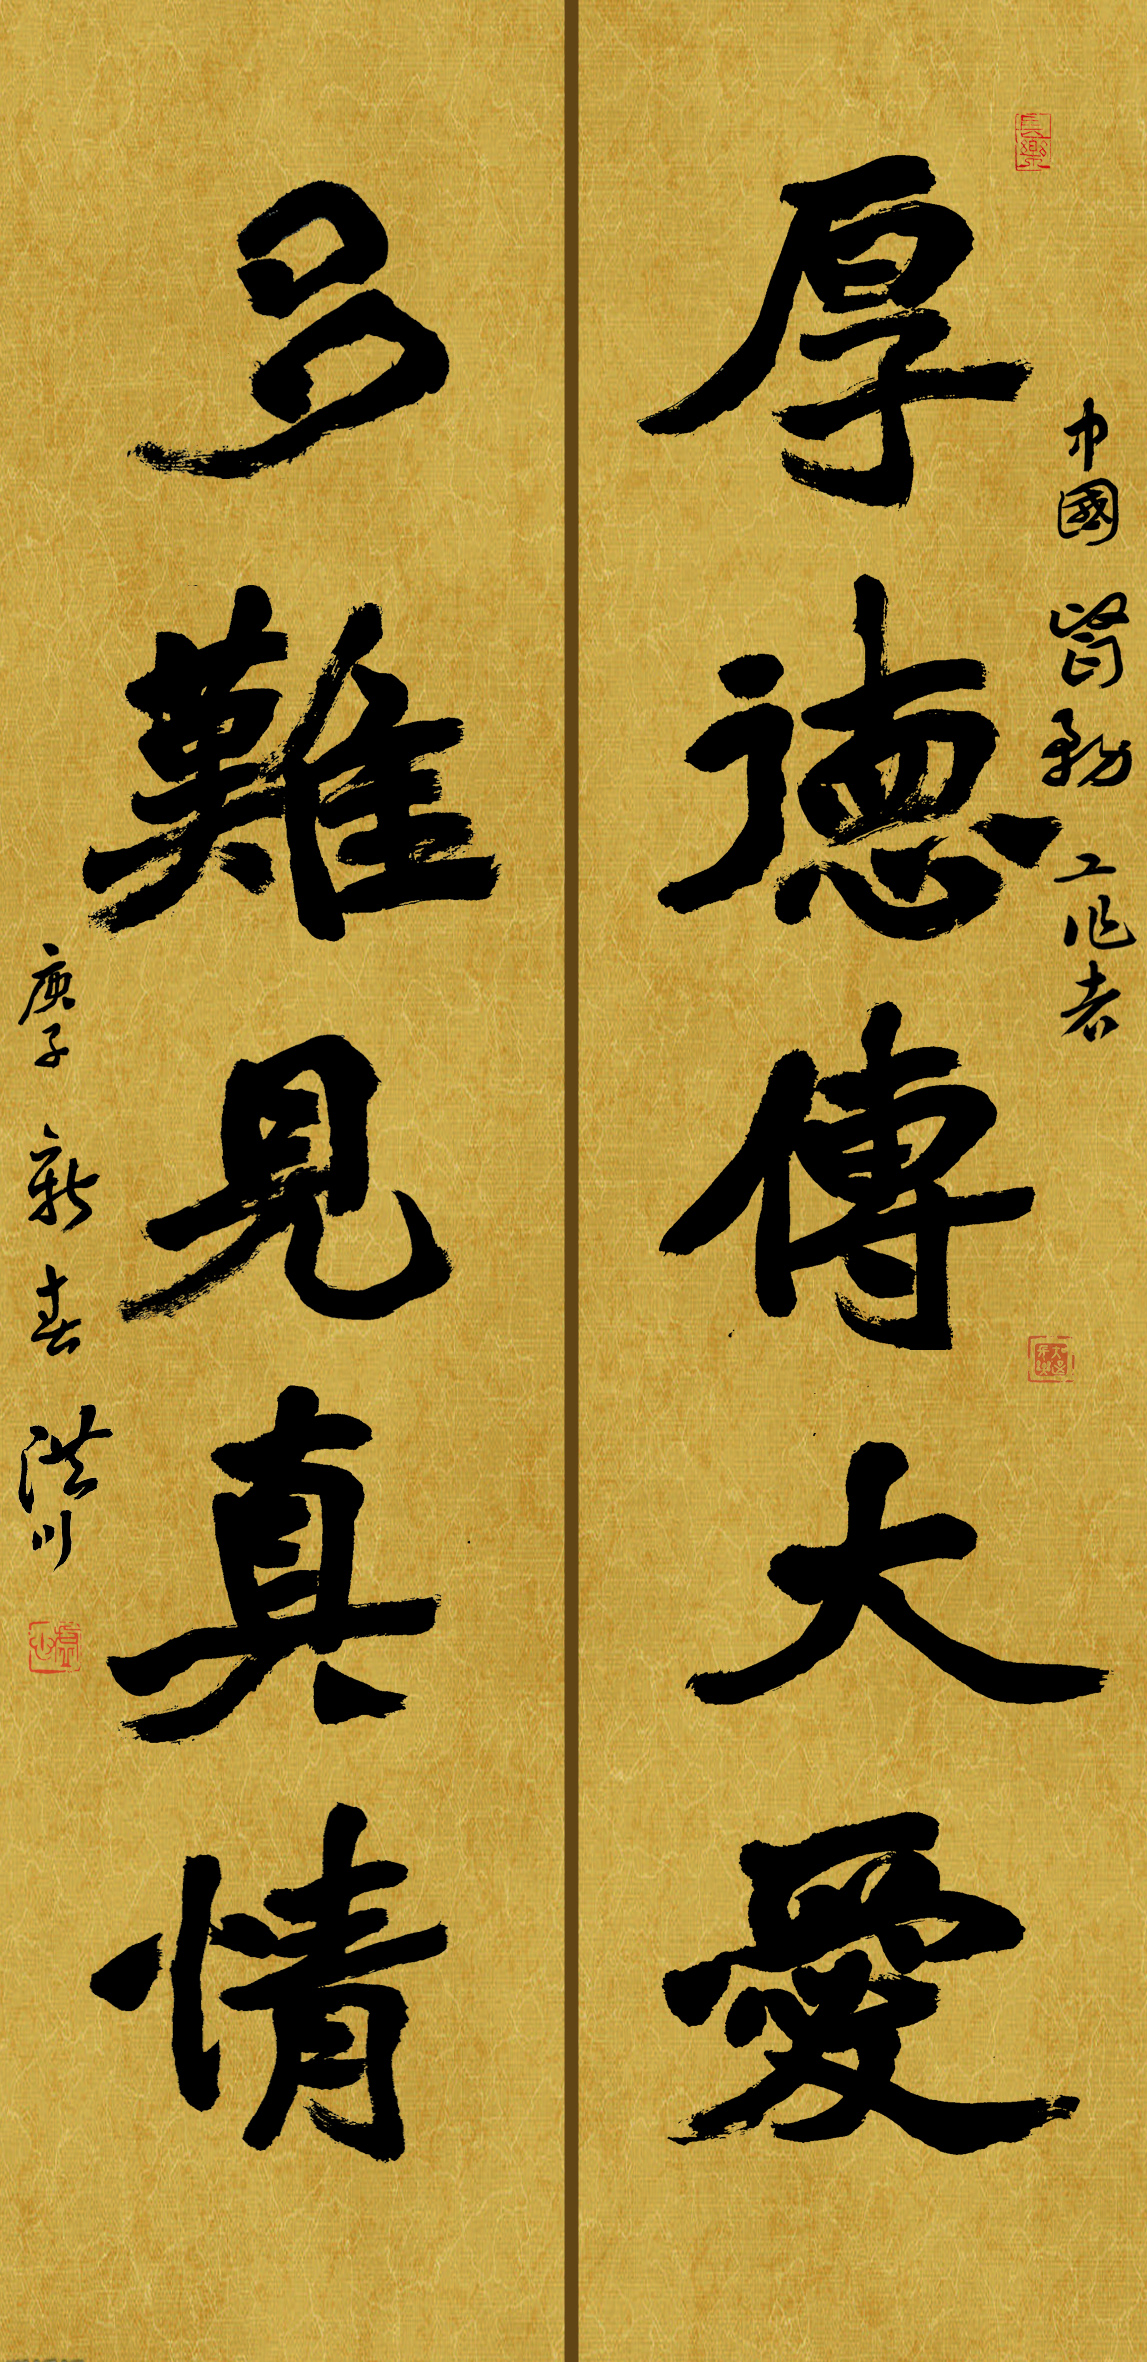 中國醫務工作者
厚德傳大愛
多難見真情
庚子新春洪川
長樂